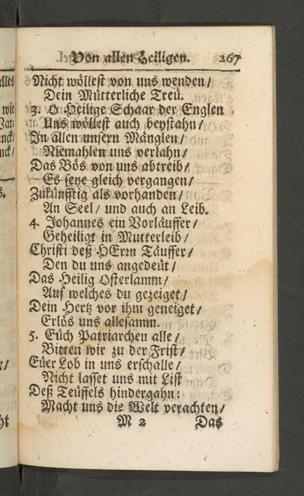 Von allen Heiligen. 267
Nicht wöllest von uns wenden/
Dein Mütterliche Treü.
3. O Heilige Schaar der Englen
Uns wöllest auch beystahn/
In allen unsern Mänglen/
Niemahlen uns verlahn/
Das Bös von uns abtreib/
Es seye gleich vergangen/
Zükünfftig als vorhanden/
An Seel/ und auch an Leib.
4. Johannes ein Vorläuffer/
Geheiligt in Mutterleib/
Christi deß HErrn Täuffer/
Den du uns angedeüt/
Das Heilig Osterlamm/
Auf welches du gezeiget/
Dem Hertz vor ihm geneiget/
Erlös uns allesamm.
5. Eüch Patriarchen alle/
Bitten wir zu der Frist/
Eüer Lob in uns erschalle/
Nicht lasset uns mit List
Deß Teüffels hindergahn:
Macht uns die Welt verachten/
M 2 Das